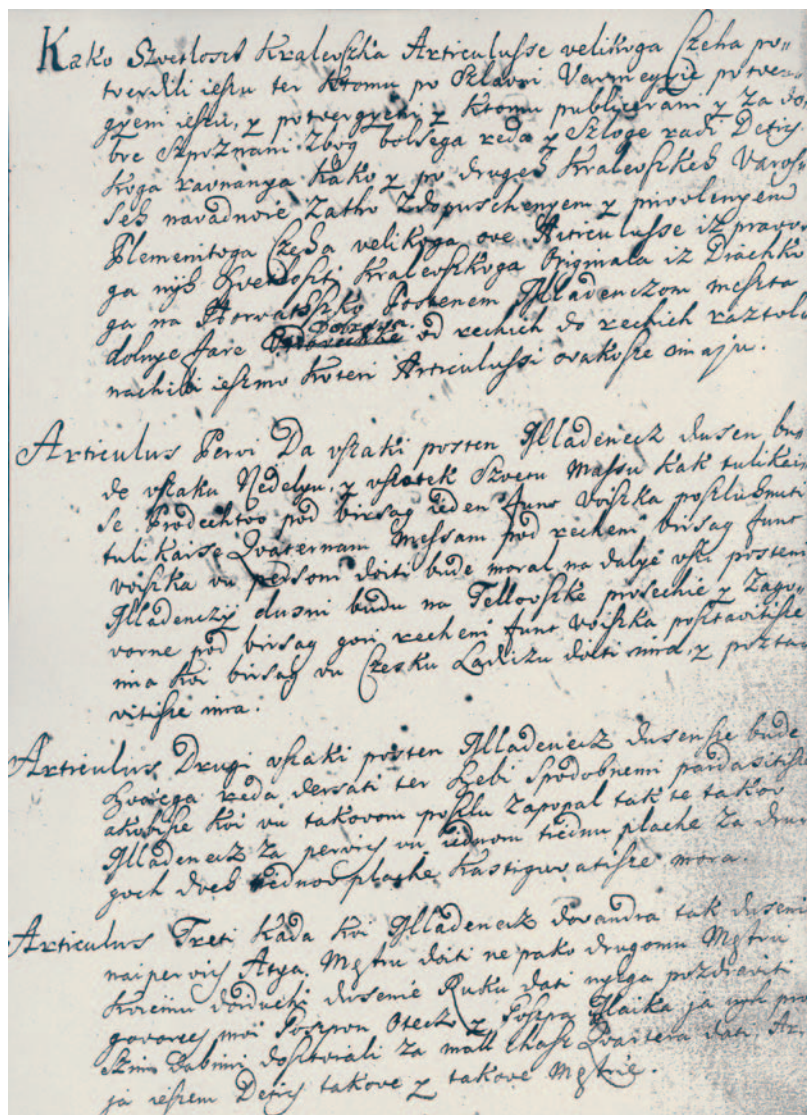 Kako Szvetloszt Kralevszka Articulusse velikoga Czeha po-
tverdili ieszu ter ktomu po Szlavni Varmegyie potver-
gyeni ieszu, y potvergyeni y ktomu publicerani y za do-
bre szpoznani zbog bolsega reda y szloge radi Detich-
koga ravnanya kako y po drugeh Kralevszkeh Varos-
seh navadnoie zatho zdopuschenyem y privolenyem
Plemenitoga Czeha velikoga ove Articulusse iz pravo-
ga nyih Kralevszkoga Originala iz Diachko-
ga na Horvatszko Postenem Mladenczom meszta
Dobrdya.
dolnye fare od rechich do rechich raztol-
nachili ieszmo koteri Articulussi ovakosse imaju.
Articulus Pervi Da vszaki posten Mladenecz dusen bu-
de vszaku Nedelyu, y vszetek Szvetu Massu kak tulikaise
se Prodechtvo pod birsag ieden funt voiszka poszluhnuti
tulikaise Quaternam Messam pod recheni birsag funt
voiszka vu persony doiti bude moral na dalye vszi posteni
Mladenczy dusni budu na Tellovszke prosechie y Zago-
vorne pod birsag gori recheni funt voiszka posztavitisze
ima koi birsag vu Czesku Ladiczu doiti ima, y poszta-
vitisze ima.
Articulus Drugi vszaki posten Mladenecz dusensze bude
szvoiega reda dersati ter szebi szpodobnemi pardasitisze
akobisze koi vu takovom poszlu zapopal tak te takov
Mladenecz za pervich vu iednom tiednu plache za dru-
goch dveh tiednov plache kastiguvatisze mora.
Articulus Treti Kada koi Mladenecz dovandra tak duseni
naipervich Atya Mestru doiti ne pako drugomu Mestru
koiemu doiduchi dusenie Ruku dati nyega pozdraviti
govorech moi Poszpon Otecz y Poszpa Maika ja nyh pro-
szim dabimi dosztoiali za mall chasz Quartera dati, Ar
ja ieszem Detich takove y takove Mestrie.